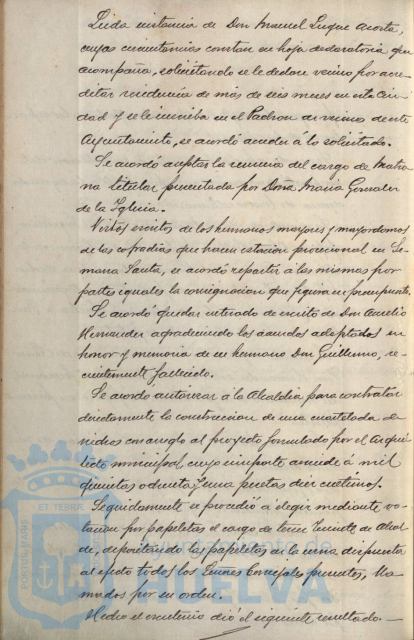 Leida instancia de Don Manuel Luque Acosta,
cuyas circunstancias constan en hoja declaratoria que
acompaña, solicitando se le declare vecino por acre-
ditar residencia de más de seis meses en esta Ciu-
dad y se le inscriba en el Padrón de vecinos de este
Ayuntamiento, se acordó acceder á lo solicitado.
Se acordó aceptar la renuncia del cargo de Matro-
na titular presentada por Doña María González
de la Iglesia.
Vistos escritos de los hermanos mayores y mayordomos
de las cofradías que hacen estación procesional en Se-
mana Santa, se acordó repartir á las mismas por
partes iguales la consignación que figura en presupuesto.
Se acordó quedar enterado de escrito de Don Aurelio
Hernández agradeciendo los acuerdos adoptados en
honor y memoria de su hermano Don Guillermo, re-
cientemente fallecido.
Se acordó autorizar á la Alcaldía para contratar
directamente la construcción de una cuartelada de
nichos con arreglo al proyecto formulado por el Arqui-
tecto municipal, cuyo importe asciende á mil
quinientas ochenta y una pesetas diez céntimos.
Seguidamente se procedió a elegir mediante vo-
tación por papeletas el cargo de tercer Teniente de Alcal-
de, depositando las papeletas en la urna dispuesta
al efecto todos los Señores Concejales presentes, lla-
mados por su orden.
Hecho el escrutinio dió el siguiente resultado.—
PORTUS MARIS
ET TERRÆ
Ayuntamiento de
HUELVA